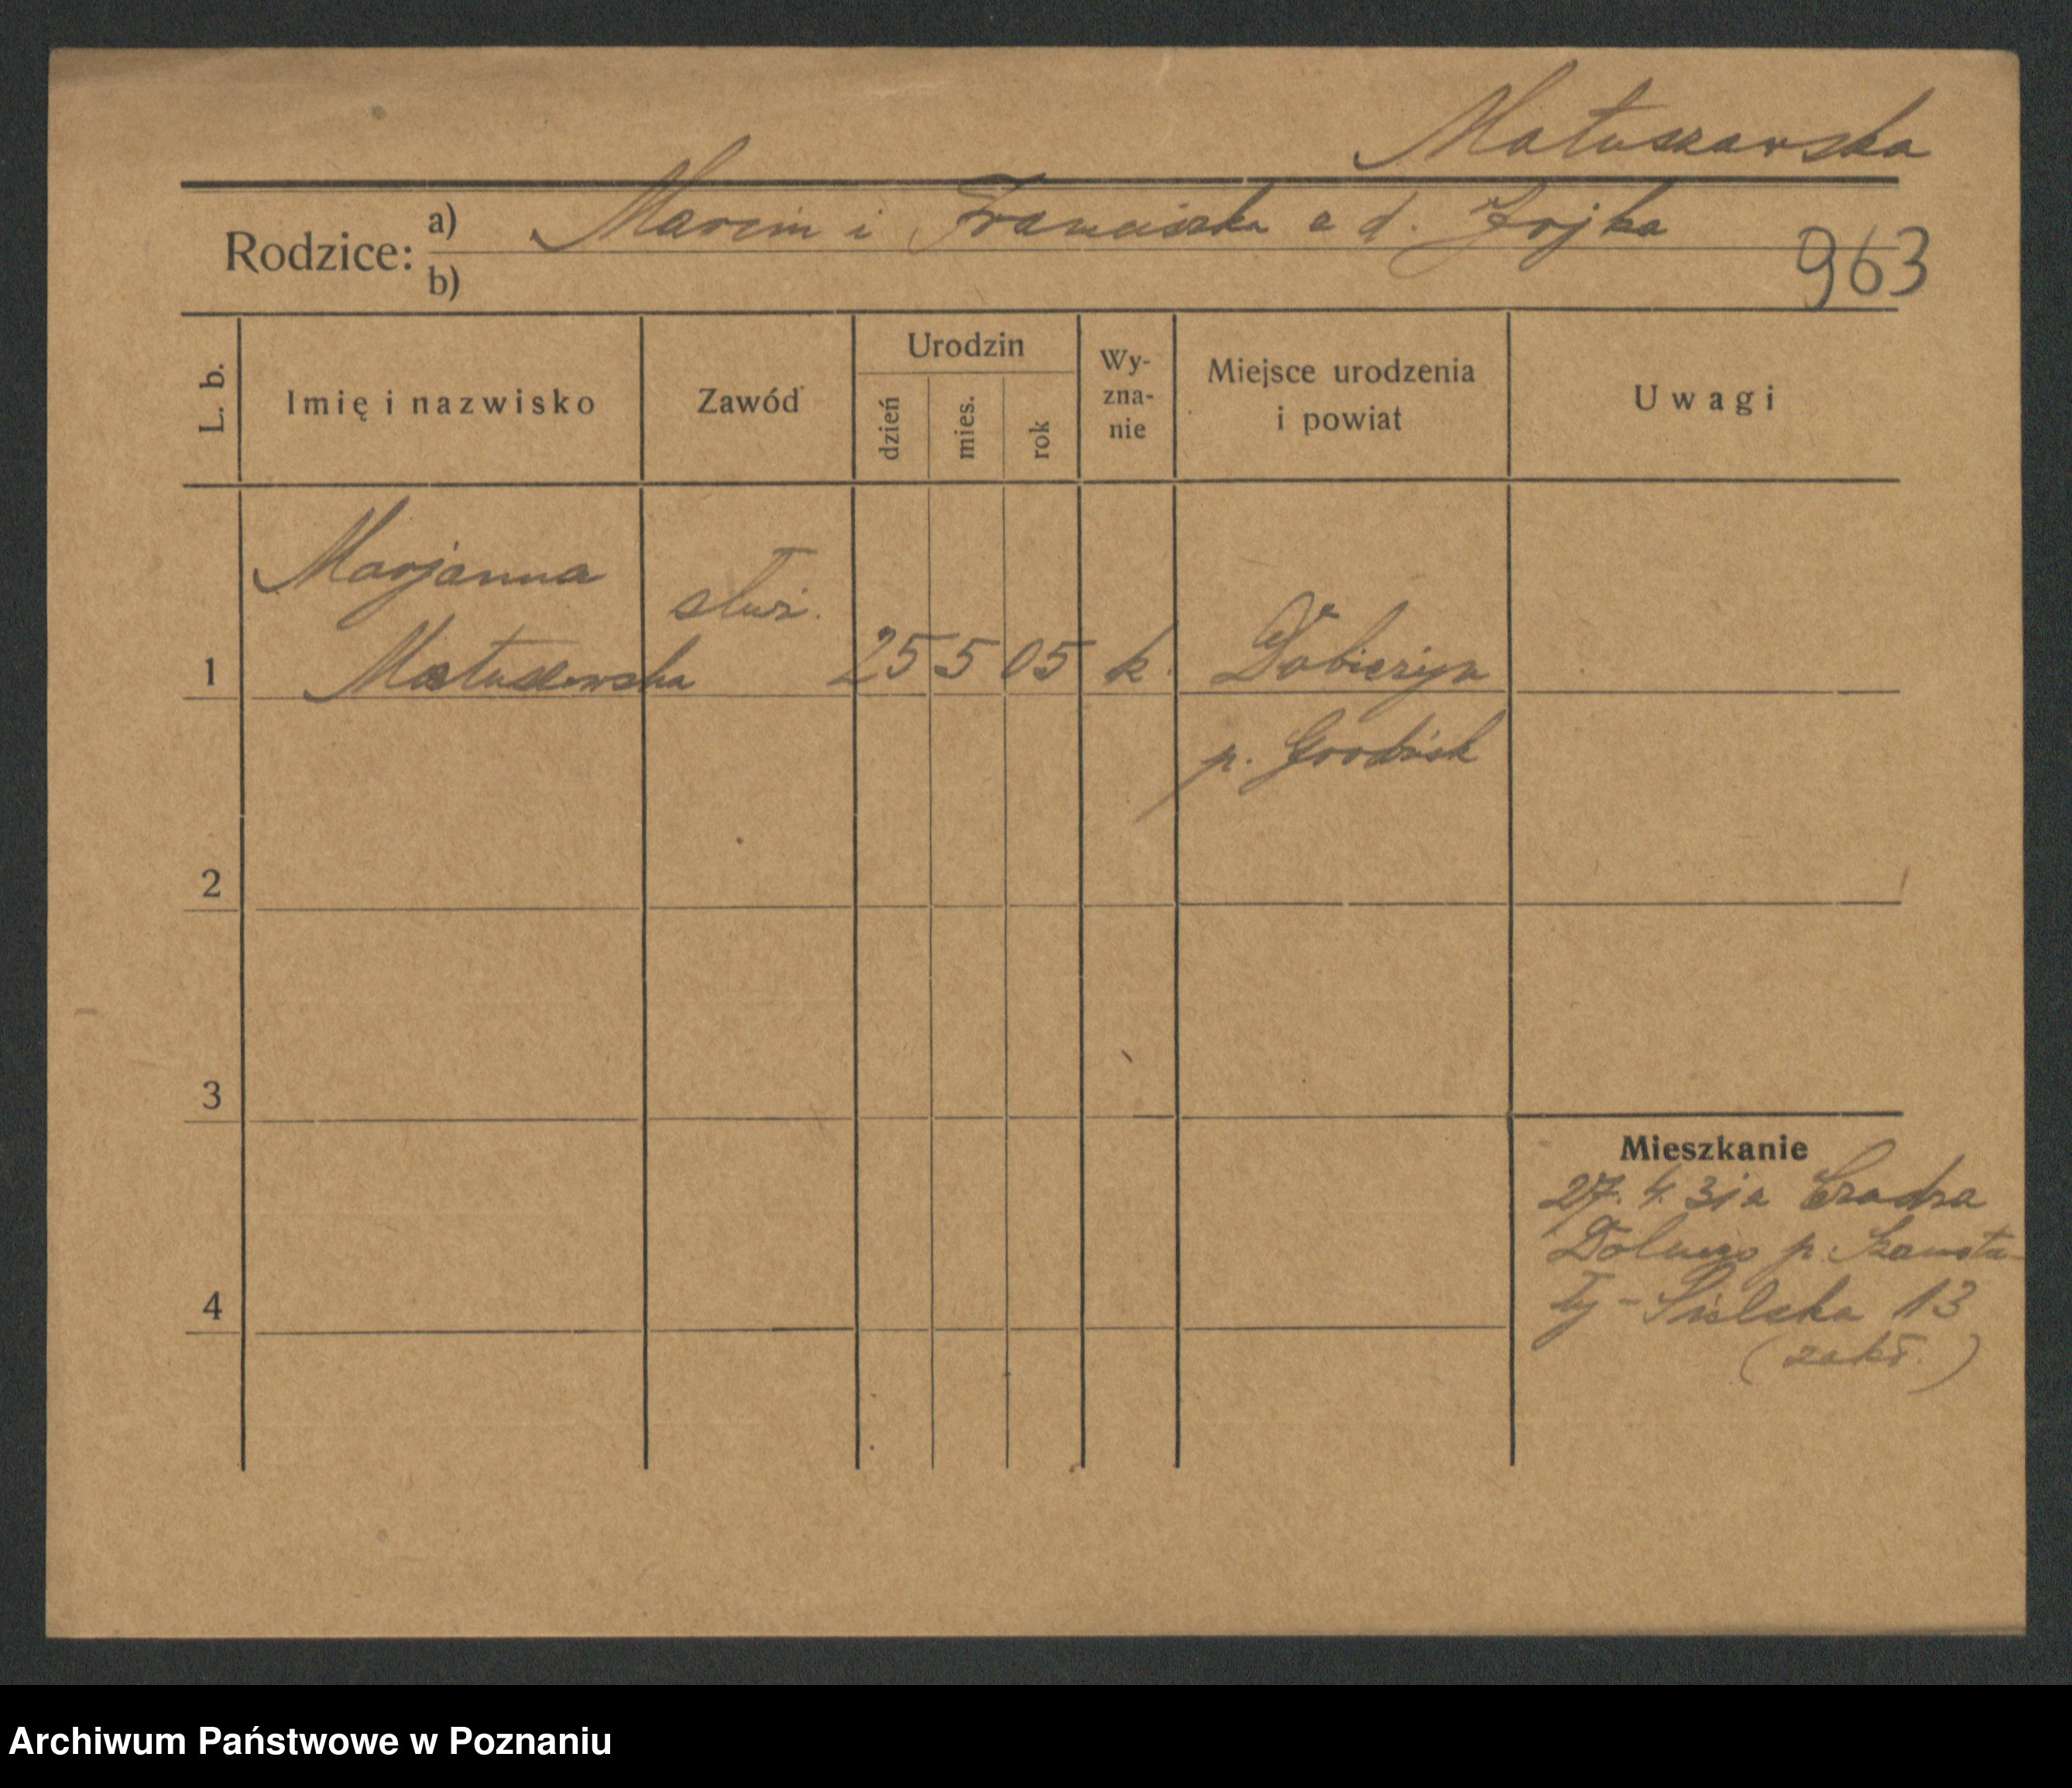 Matuszewska
Rodzice: a) Marcin i Franciszka z d. Frojka
b)
963
L. b. Imię i nazwisko Zawód Urodzin dzień mies. rok Wy-zna-nie Miejsce urodzenia i powiat Uwagi
Marjanna
służ.
1 Matuszewska 25 5 05 k. Dobieżyn
p. Grodzisk
2
3
Mieszkanie
27. 4. 31 z
Dolnego p. Szamotu-
4 ły - Sielska 13
(zakł.)
Archiwum Państwowe w Poznaniu